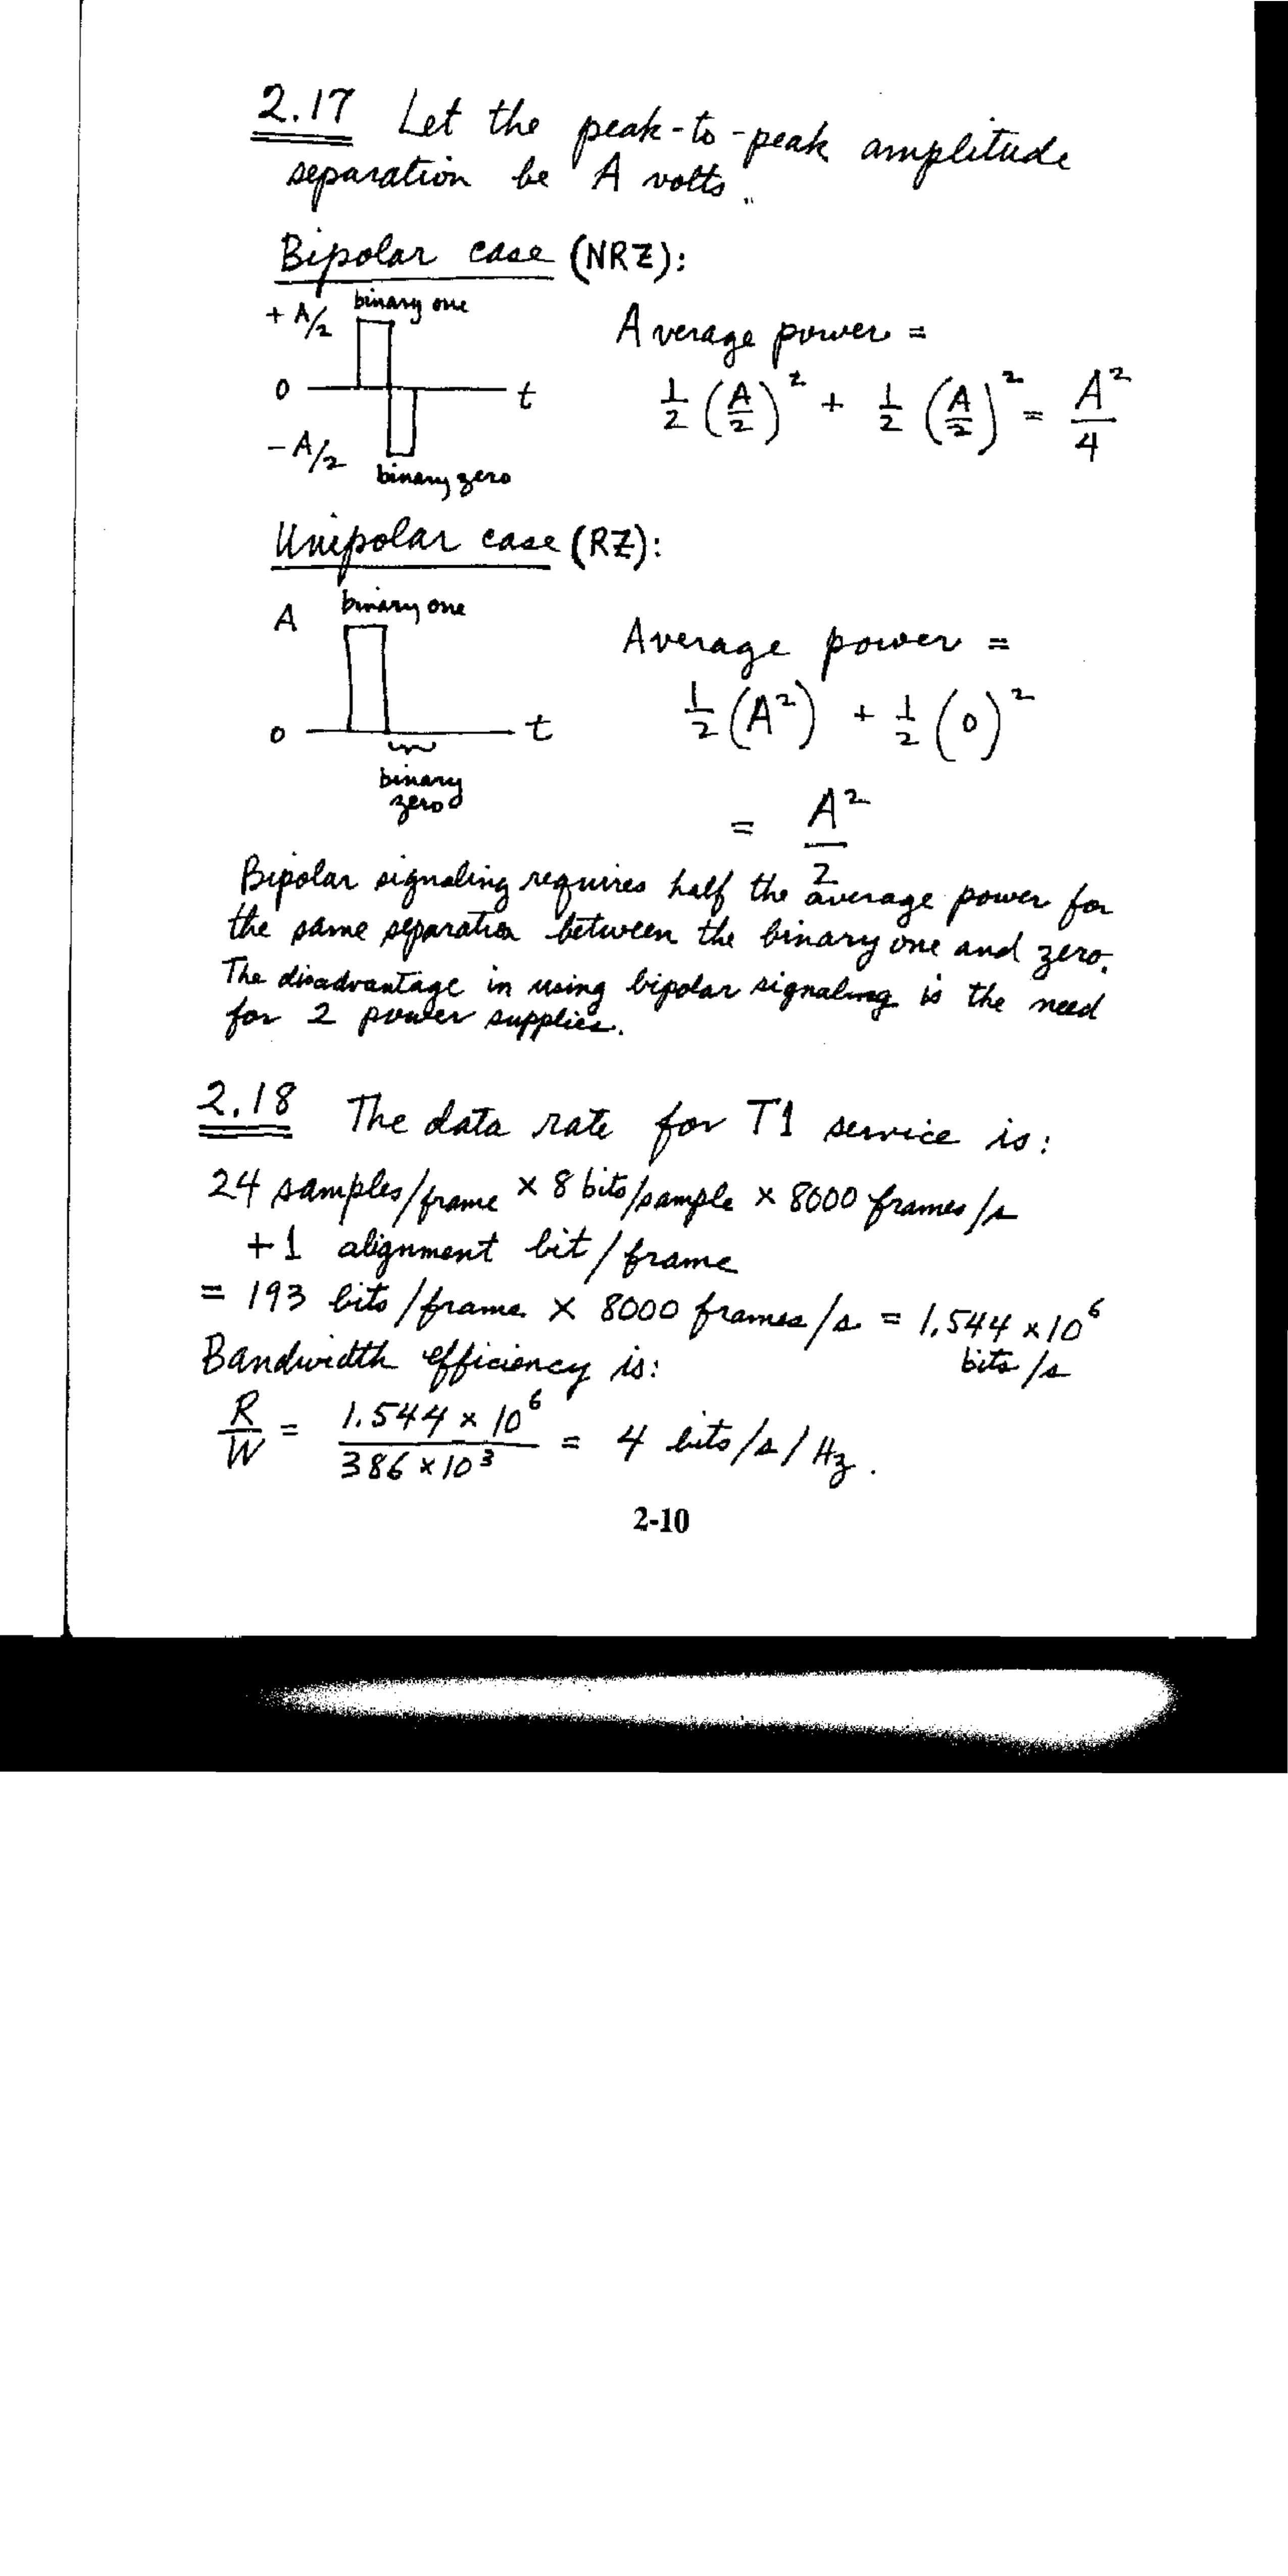 2.17 Let the peak-to-peak amplitude
separation be A volts.
Bipolar case (NRZ):
+ A/2 binary one
Average power =
0 t
1/2 (A/2)² + 1/2 (A/2)² = A²/4
- A/2
binary zero
Unipolar case (RZ):
A binary one
Average power =
1/2 (A²) + 1/2 (0)²
0 t
binary
zero
= A²/2
Bipolar signaling requires half the average power for
the same separation between the binary one and zero.
The disadvantage in using bipolar signaling is the need
for 2 power supplies.
2.18 The data rate for T1 service is:
24 samples/frame × 8 bits/sample × 8000 frames/s
+1 alignment bit/frame
= 193 bits/frame × 8000 frames/s = 1.544 × 10⁶
bits/s
Bandwidth efficiency is:
R/W = 1.544 × 10⁶ / 386 × 10³ = 4 bits/s/Hz.
2-10